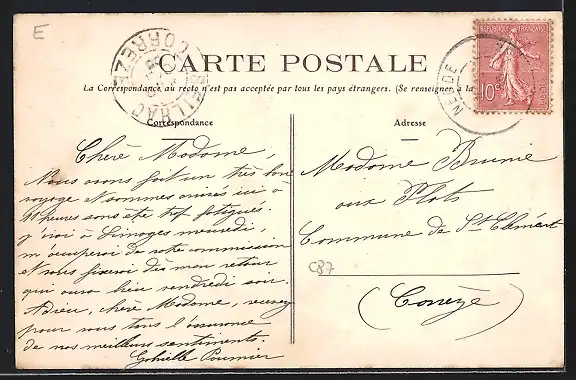 E
CARTE POSTALE
La Correspondance au recto n'est pas acceptée par tous les pays étrangers. (Se renseigner à la
Correspondance
Chère Madame,
Nous avons fait un très bon
voyage et sommes arrivés ici à
11 heures sans être trop fatigués.
J'irai à Limoges mercredi,
m'occuperai de votre commission
et vous fixerai dès mon retour
qui aura lieu vendredi soir.
Adieu, chère Madame, recevez
pour vous tous l'assurance
de nos meilleurs sentiments.
Adresse
Madame
aux Plats
Commune de St Clément
C87
(Corrèze)
CORRÈZE
REPUBLIQUE FRANÇAISE
10c